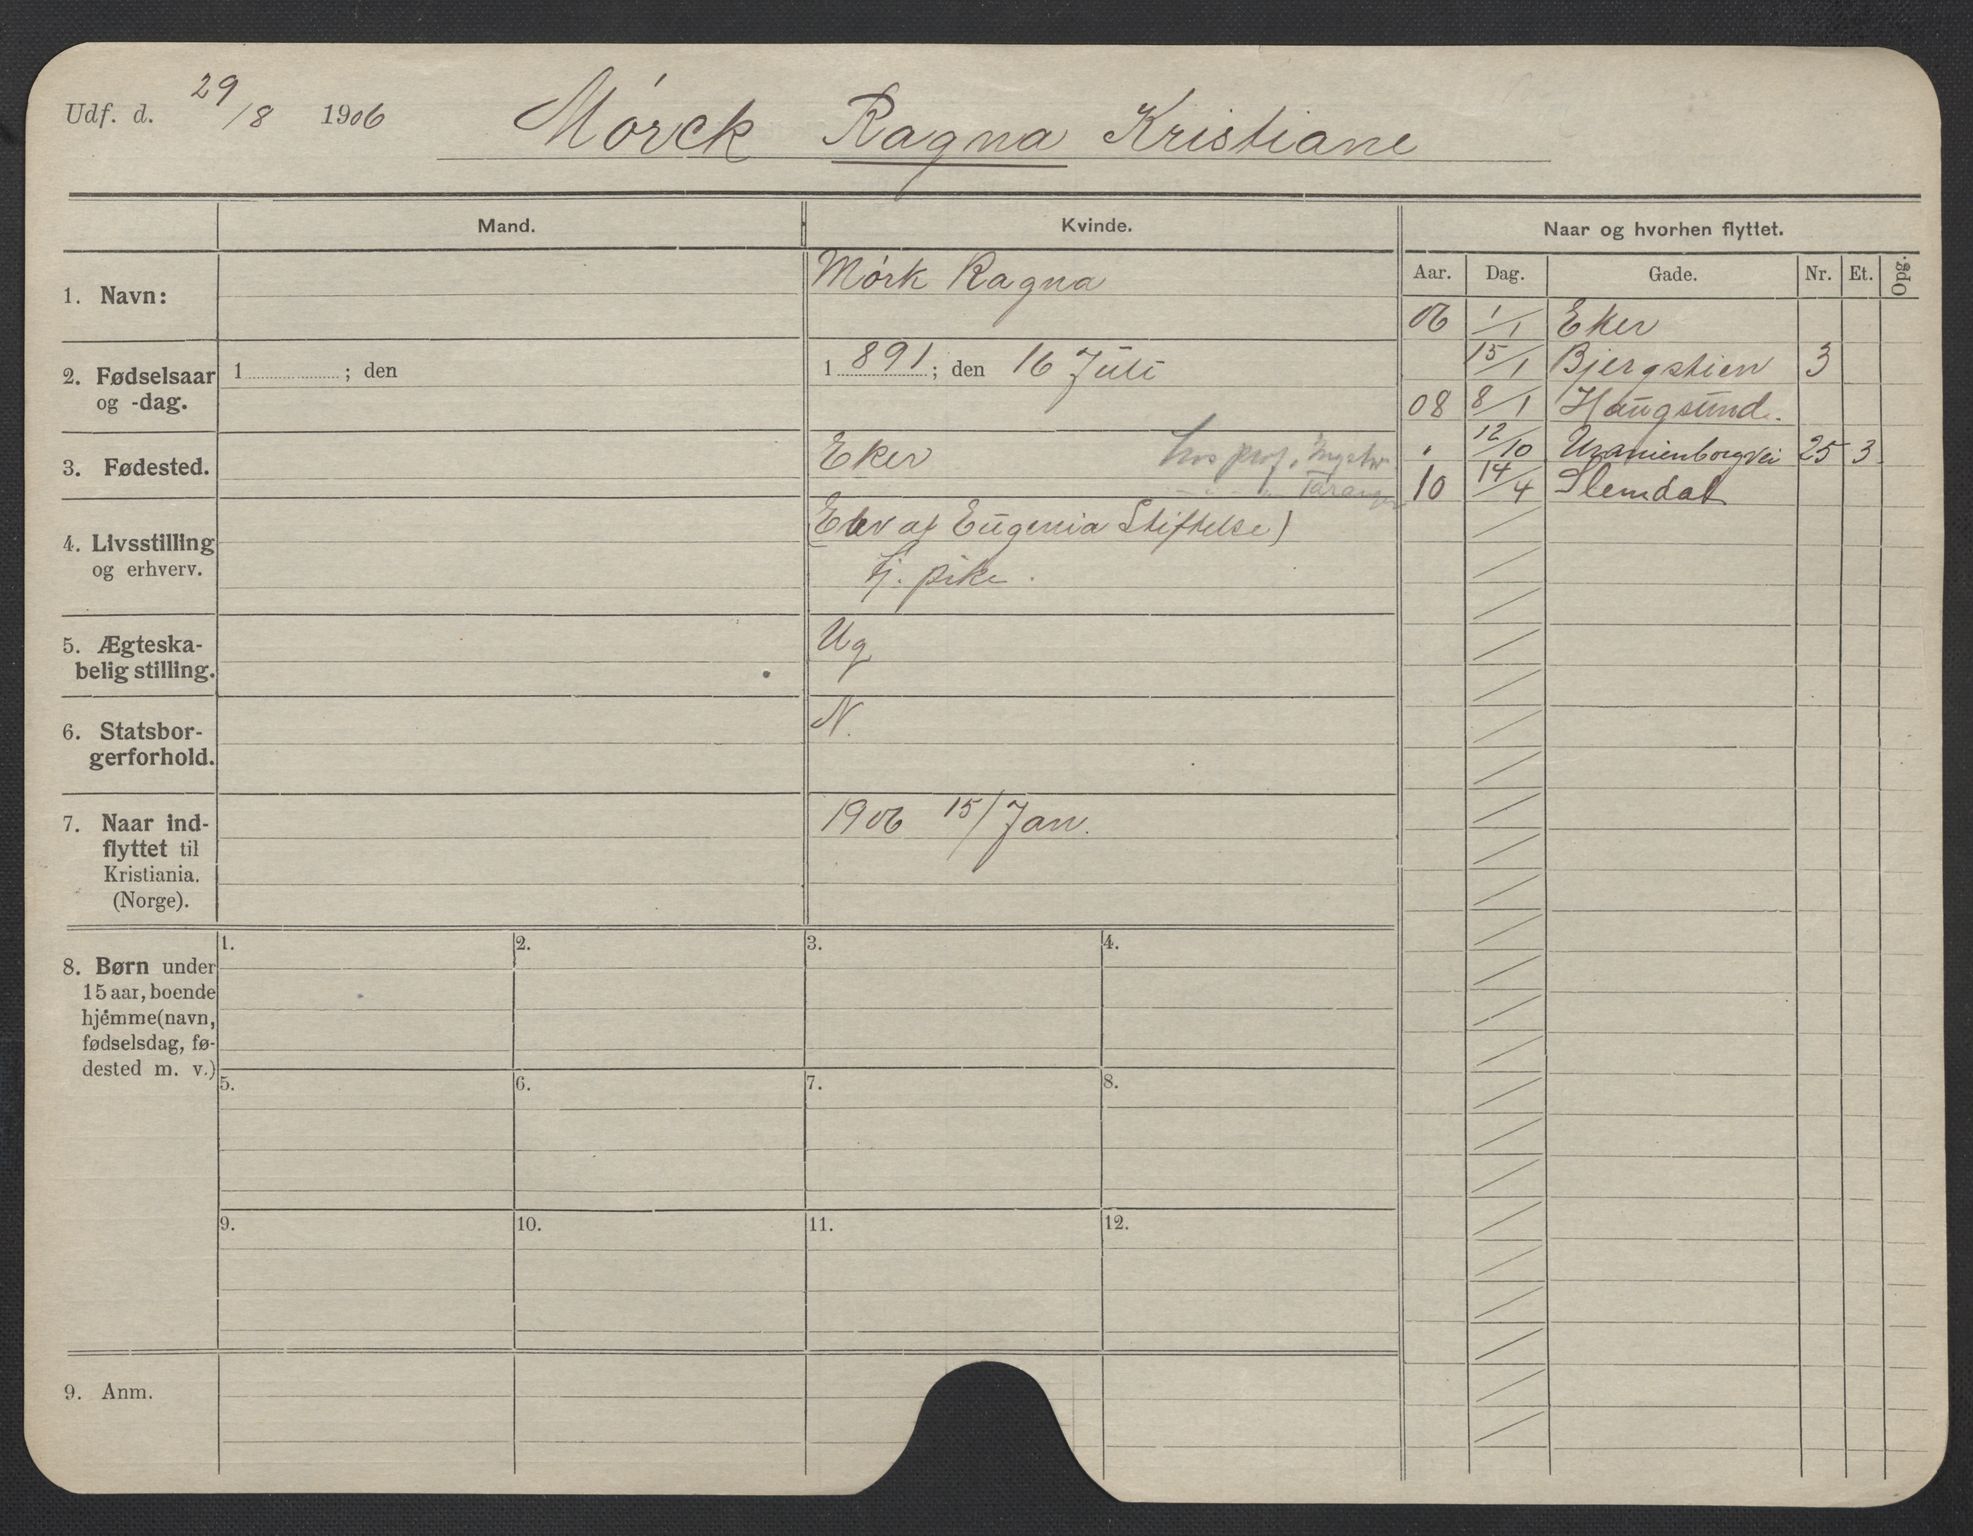 Udf. d. 29/8 1906 Mórck Ragna Kristiane
Mand. Kvinde. Naar og hvorhen flyttet.
Aar. Dag. Gade. Nr. Et. Opg.
1. Navn: Mórk Ragna
06 1/1 Eker
2. Fødselsaar og -dag. 1 ; den 1891; den 16 Júli
15/1 Bjergstien 3
08 8/1 Haúgsúnd.
3. Fødested. Eker hos prof.
" 12/10 Uranienborgvei 25 3
Taranger
10 14/4 Slemdal
4. Livsstilling og erhverv. (Elev af Eúgenia Stiftelse)
tj. pike.
5. Ægteska-
belig stilling. Ug
6. Statsbor-
gerforhold. N.
7. Naar ind-
flyttet til
Kristiania.
(Norge). 1906 15/Jan.
8. Børn under
15 aar, boende
hjemme (navn,
fødselsdag, fø-
dested m. v.)
1. 2. 3. 4.
5. 6. 7. 8.
9. 10. 11. 12.
9. Anm.